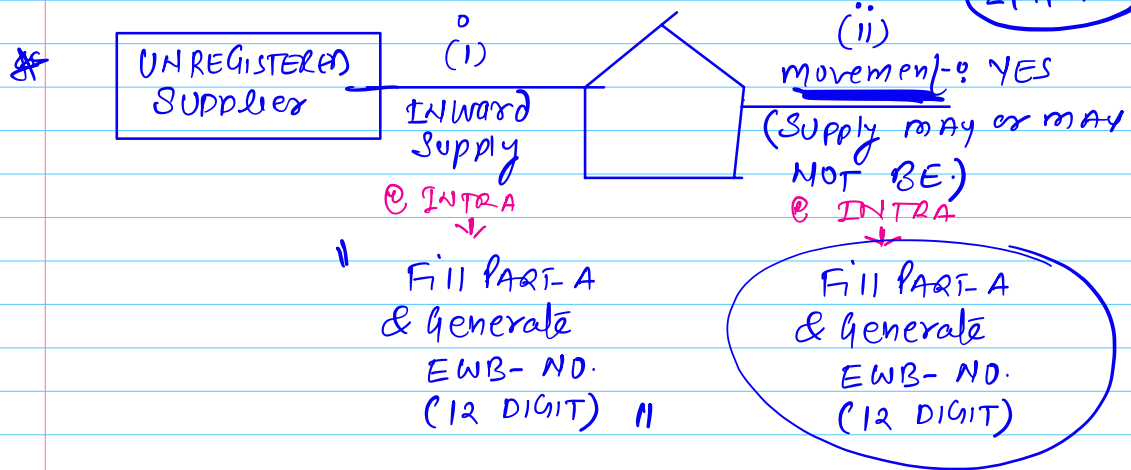 UNREGISTERED
SUPPlier
(i)
INWard
Supply
@ INTRA
Fill PART-A
& Generate
EWB- NO.
(12 DIGIT)
(ii)
movement-: YES
(Supply mAy or mAY
NOT BE.)
@ INTRA
Fill PART-A
& Generate
EWB- NO.
(12 DIGIT)